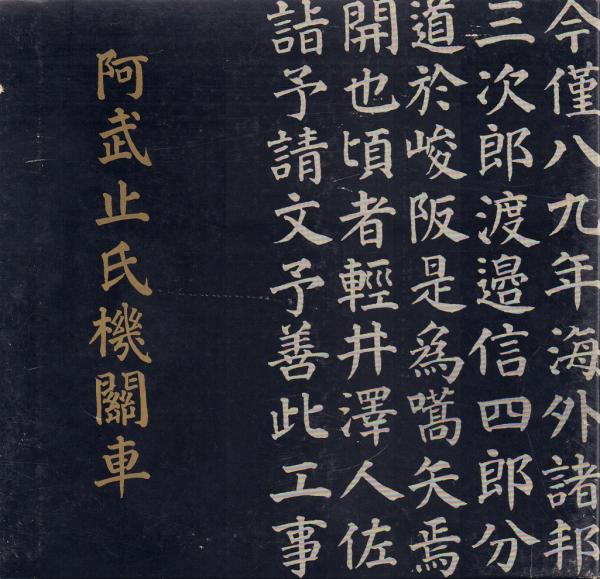 今僅八九年海外諸邦
三次郎渡邉信四郎分
道於峻阪是為嚆矢焉
開也頃者輕井澤人佐
詣予請文予善此工事
阿武止氏機關車